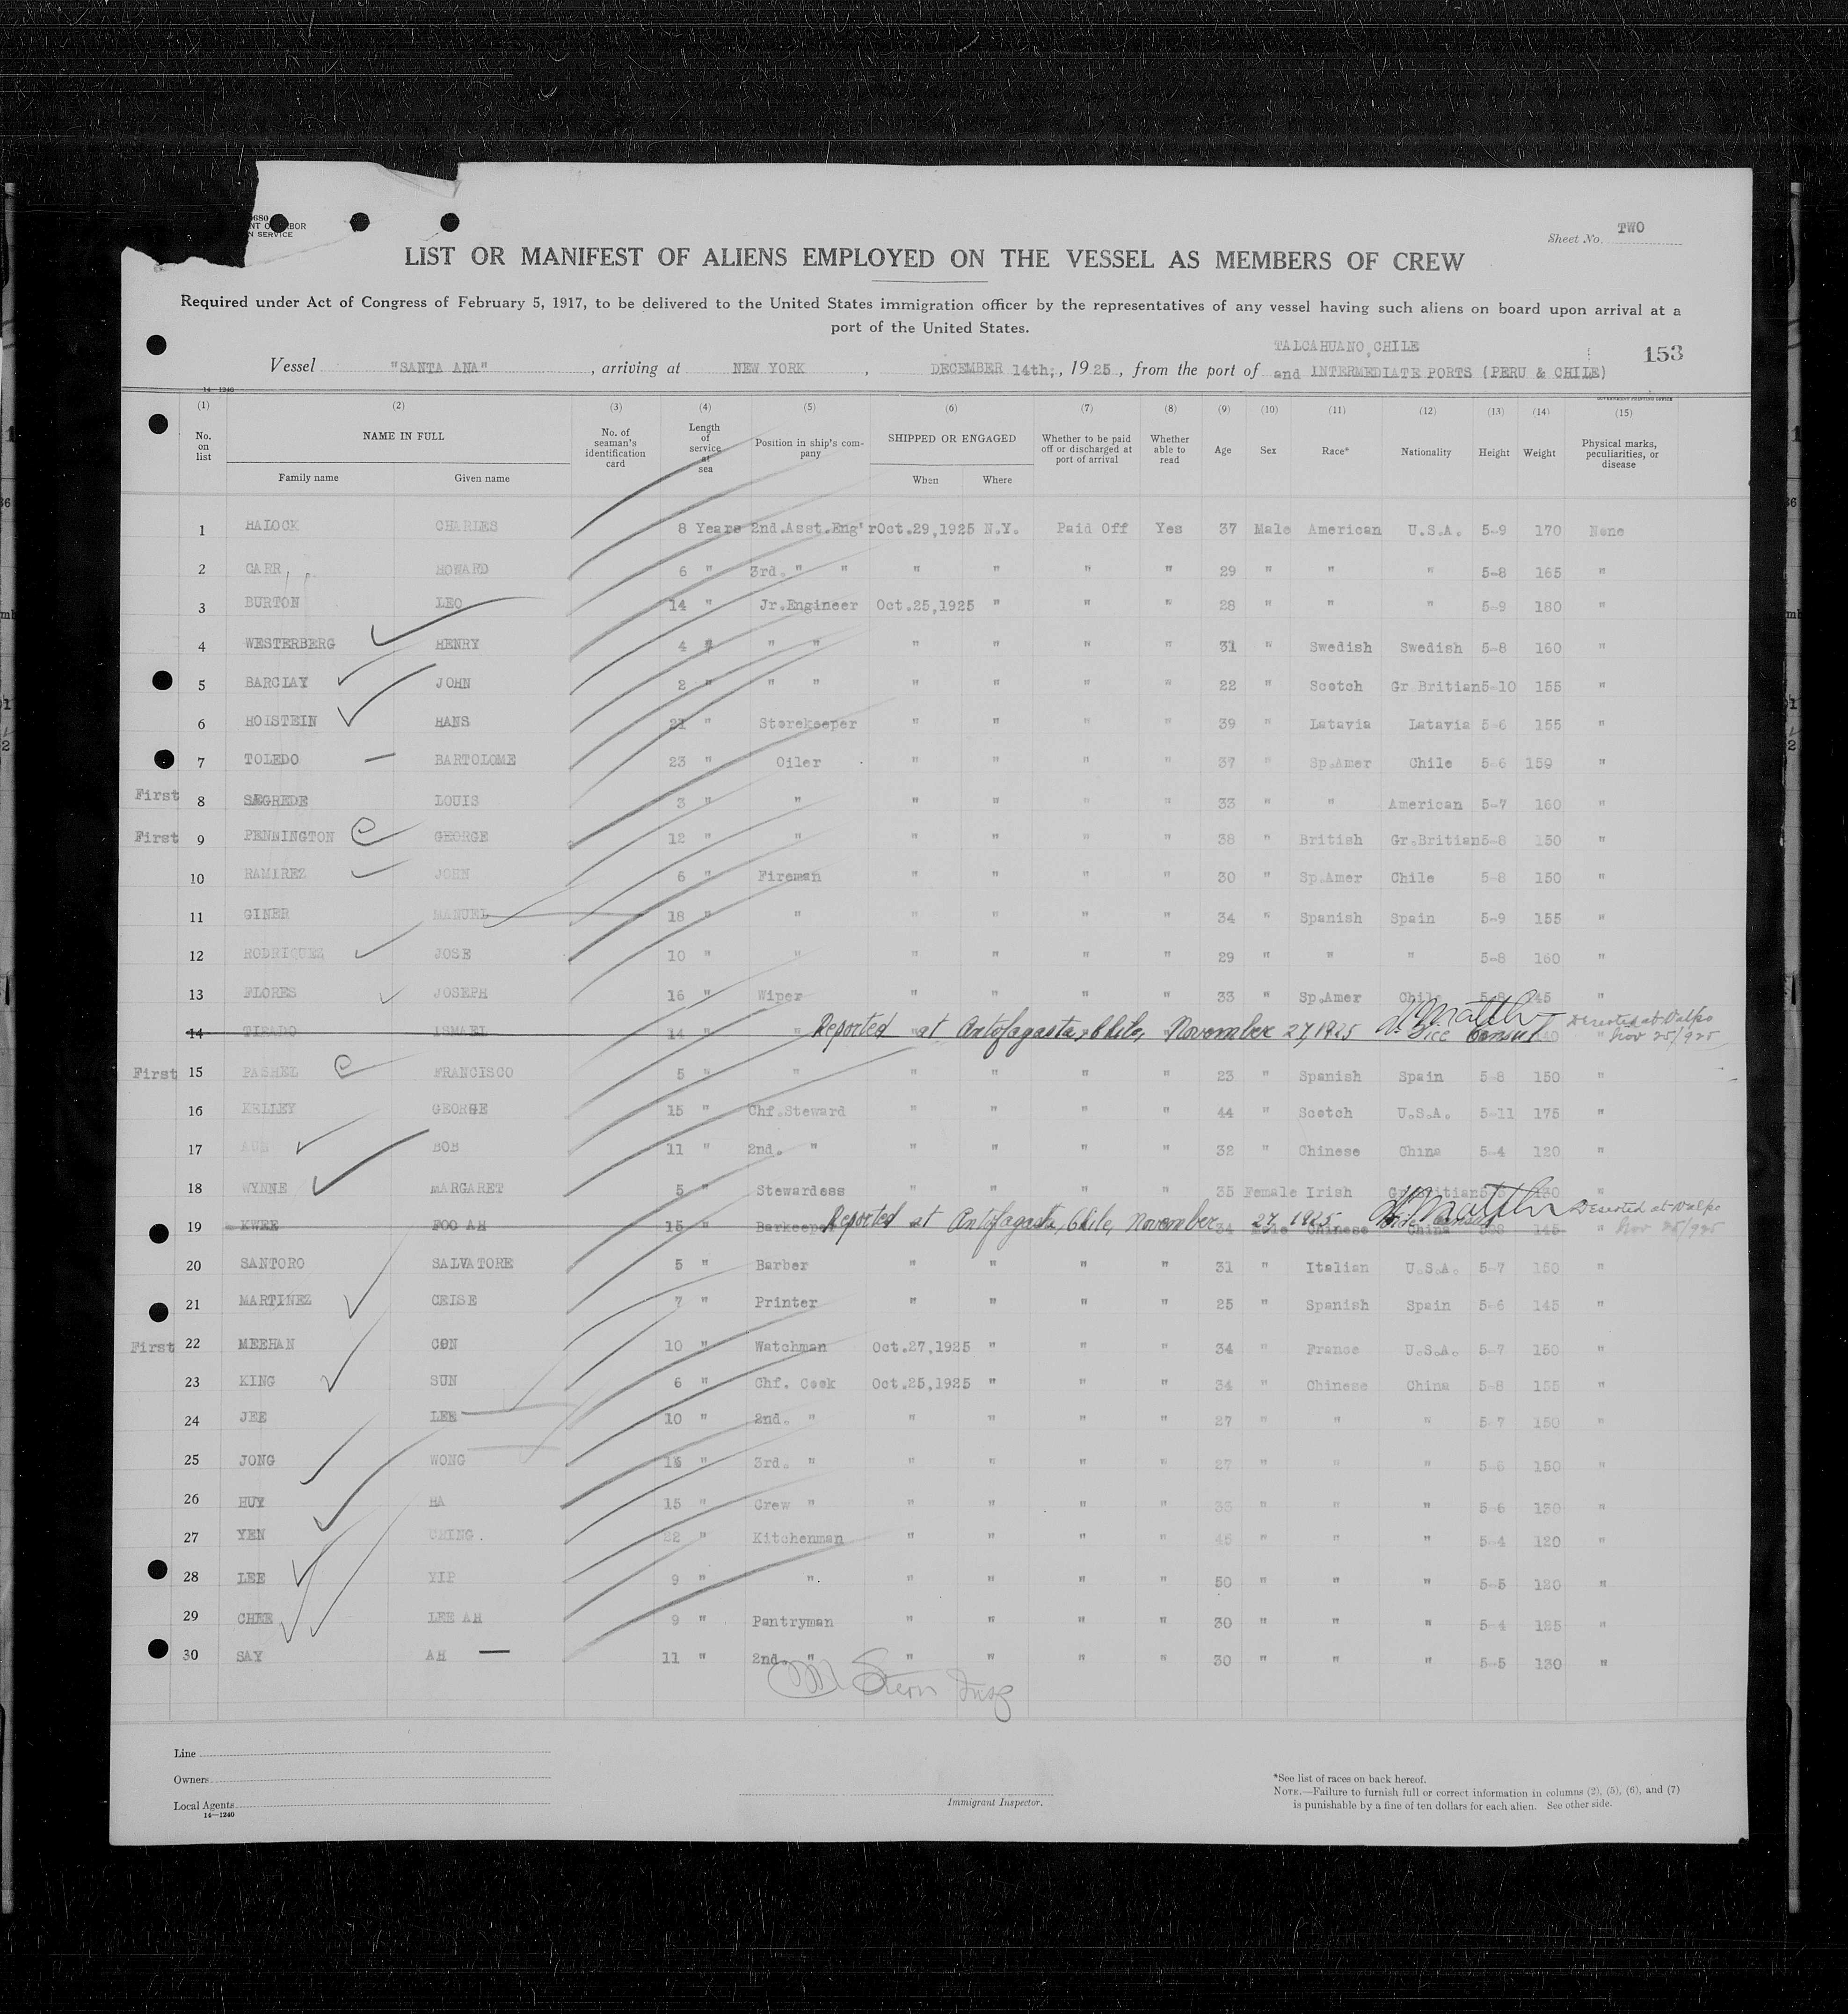 680
NT O BOR
N SERVICE
Sheet No. TWO
LIST OR MANIFEST OF ALIENS EMPLOYED ON THE VESSEL AS MEMBERS OF CREW
Required under Act of Congress of February 5, 1917, to be delivered to the United States immigration officer by the representatives of any vessel having such aliens on board upon arrival at a
port of the United States.
TALCAHUANO, CHILE
153
Vessel "SANTA ANA", arriving at NEW YORK, DECEMBER 14th;, 1925, from the port of and INTERMEDIATE PORTS (PERU & CHILE)
14—1240
GOVERNMENT PRINTING OFFICE
(1) (2) (3) (4) (5) (6) (7) (8) (9) (10) (11) (12) (13) (14) (15)
No. on list NAME IN FULL Family name Given name No. of seaman's identification card Length of service at sea Position in ship's company SHIPPED OR ENGAGED When Where Whether to be paid off or discharged at port of arrival Whether able to read Age Sex Race* Nationality Height Weight Physical marks, peculiarities, or disease
1 HALOCK CHARLES 8 Years 2nd.Asst.Eng'r Oct.29,1925 N.Y. Paid Off Yes 37 Male American U.S.A. 5-9 170 None
2 CARR, HOWARD 6 " 3rd. " " " " " " 29 " " " 5-8 165 "
3 BURTON LEO 14 " Jr.Engineer Oct.25,1925 " " " 28 " " " 5-9 180 "
4 WESTERBERG HENRY 4 " " " " " " " 31 " Swedish Swedish 5-8 160 "
5 BARCLAY JOHN 2 " " " " " " " 22 " Scotch Gr.Britian 5-10 155 "
6 HOLSTEIN HANS 21 " Storekeeper " " " " 39 " Latavia Latavia 5-6 155 "
7 TOLEDO BARTOLOME 23 " Oiler " " " " 37 " Sp.Amer Chile 5-6 159 "
First 8 SEGREDE LOUIS 3 " " " " " " 33 " " American 5-7 160 "
First 9 PENNINGTON GEORGE 12 " " " " " " 38 " British Gr.Britian 5-8 150 "
10 RAMIREZ JOHN 6 " Fireman " " " " 30 " Sp.Amer Chile 5-8 150 "
11 GINER MANUEL 18 " " " " " " 34 " Spanish Spain 5-9 155 "
12 RODRIQUES JOSE 10 " " " " " " 29 " " " 5-8 160 "
13 FLORES JOSEPH 16 " Wiper " " " " 33 " Sp.Amer Chile 5-8 45 "
14 TIRADO ISMAEL 14 " " Reported at Antofagasta, Chile, November 27, 1925 Vice Consul 40 " Deserted at Valpo Nov 25/925
First 15 PASHEL FRANCISCO 5 " " " " " " 23 " Spanish Spain 5-8 150 "
16 KELLEY GEORGE 15 " Chf.Steward " " " " 44 " Scotch U.S.A. 5-11 175 "
17 BOB 11 " 2nd. " " " " " 32 " Chinese China 5-4 120 "
18 WYNNE MARGARET 5 " Stewardess " " " " 35 Female Irish Gr.Britian "
19 KWEE FOO AH 15 " Barkeeper Reported at Antofagasta, Chile, November 27, 1925 34 Male Chinese China 145 " Deserted at Valpo Nov 25/925
20 SANTORO SALVATORE 5 " Barber " " " " 31 " Italian U.S.A. 5-7 150 "
21 MARTINEZ CEISE 7 " Printer " " " " 25 " Spanish Spain 5-6 145 "
First 22 MEEHAN CON 10 " Watchman Oct.27,1925 " " " 34 " France U.S.A. 5-7 150 "
23 KING SUN 6 " Chf. Cook Oct.25,1925 " " " 34 " Chinese China 5-8 155 "
24 JEE LEE 10 " 2nd. " " " " " 27 " " " 5-7 150 "
25 JONG WONG " 3rd. " " " " " 27 " " " 150 "
26 HUY HA 15 " Crew " " " " " " " " 5-6 130 "
27 YEN CHING. 22 " Kitchenman " " " " " " " 5-4 120 "
28 LEE YIP 9 " " " " " " 50 " " " 5-5 120 "
29 CHEE LEE AH 9 " Pantryman " " " " 30 " " " 5-4 125 "
30 SAY AH 11 " 2nd. " " " " " 30 " " " 5-5 130 "
Stern Insp
Line
Owners
Local Agents
14—1240
Immigrant Inspector.
*See list of races on back hereof.
NOTE.—Failure to furnish full or correct information in columns (2), (5), (6), and (7)
is punishable by a fine of ten dollars for each alien. See other side.